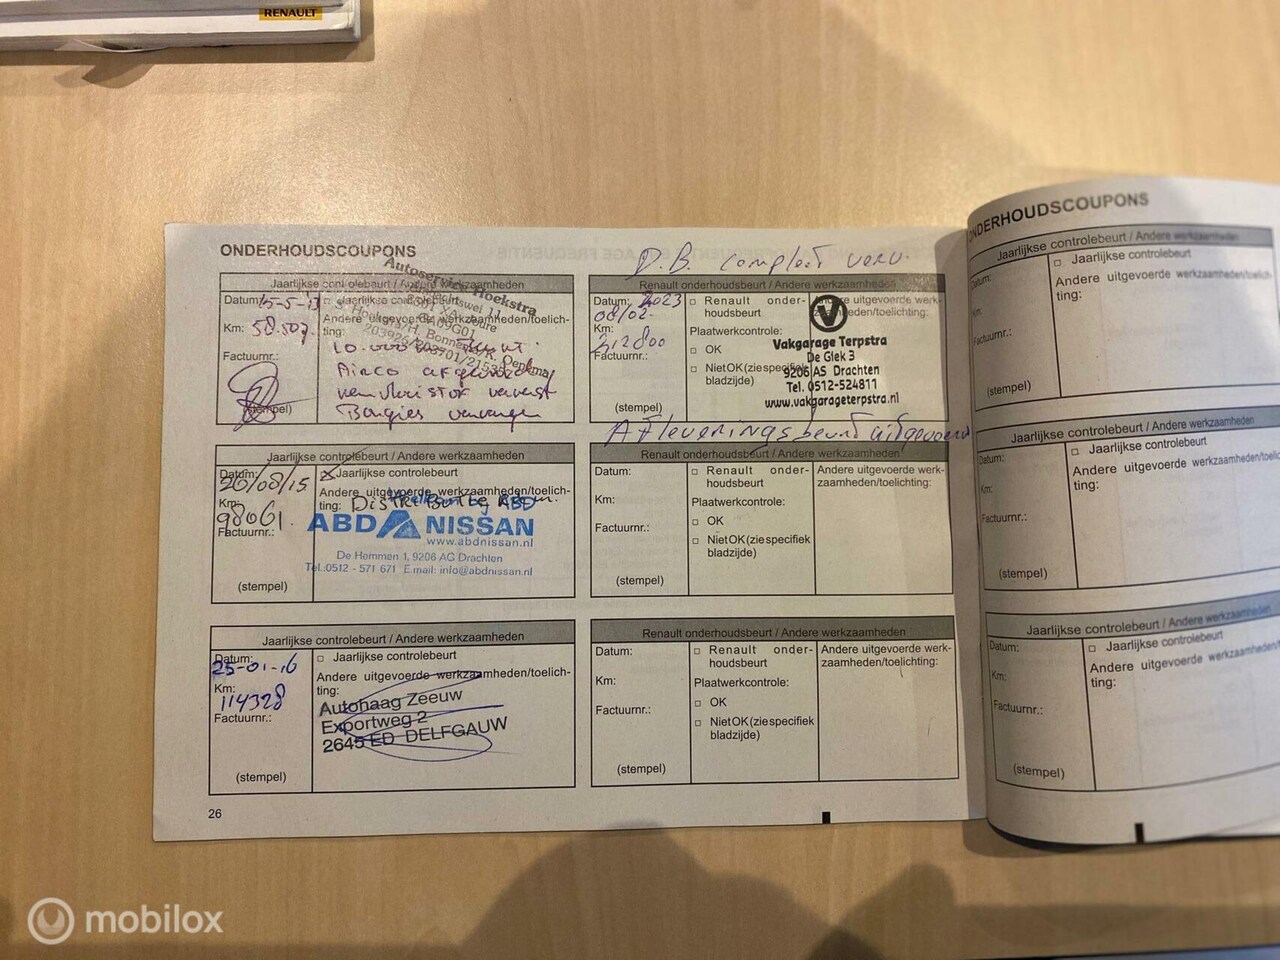 RENAULT
ONDERHOUDSCOUPONS
Jaarlijkse controlebeurt / Andere werkzaamheden
Datum: 15-5-13
□ Jaarlijkse controlebeurt
Km: 58.507
Andere uitgevoerde werkzaamheden/toelich-
ting:
Factuurnr.:
(stempel)
Autoservice Hoekstra
10.000
Airco
vervangen
D.B. compleet verv.
Renault onderhoudsbeurt / Andere werkzaamheden
Datum: 2023
08/02
Km:
212800
Factuurnr.:
(stempel)
□ Renault onder-
houdsbeurt
Plaatwerkcontrole:
□ OK
□ Niet OK (zie specifiek
bladzijde)
Andere uitgevoerde werk-
zaamheden/toelichting:
V
Vakgarage Terpstra
De Giek 3
9206 AS Drachten
Tel. 0512-524811
www.vakgarageterpstra.nl
Afleveringsbeurt uitgevoerd
Jaarlijkse controlebeurt / Andere werkzaamheden
Datum:
26/08/15
Km:
98061.
Factuurnr.:
(stempel)
Jaarlijkse controlebeurt
Andere uitgevoerde werkzaamheden/toelich-
ting:
ABD NISSAN
www.abdnissan.nl
De Hemmen 1, 9206 AG Drachten
Tel.:0512 - 571 671 E.mail: info@abdnissan.nl
Renault onderhoudsbeurt / Andere werkzaamheden
Datum:
Km:
Factuurnr.:
(stempel)
□ Renault onder-
houdsbeurt
Plaatwerkcontrole:
□ OK
□ Niet OK (zie specifiek
bladzijde)
Andere uitgevoerde werk-
zaamheden/toelichting:
Jaarlijkse controlebeurt / Andere werkzaamheden
Datum:
25-01-16
Km:
114328
Factuurnr.:
(stempel)
□ Jaarlijkse controlebeurt
Andere uitgevoerde werkzaamheden/toelich-
ting:
Autohaag Zeeuw
Exportweg 2
2645 ED DELFGAUW
Renault onderhoudsbeurt / Andere werkzaamheden
Datum:
Km:
Factuurnr.:
(stempel)
□ Renault onder-
houdsbeurt
Plaatwerkcontrole:
□ OK
□ Niet OK (zie specifiek
bladzijde)
Andere uitgevoerde werk-
zaamheden/toelichting:
26
ONDERHOUDSCOUPONS
Jaarlijkse controlebeurt / Andere werkzaamheden
Datum:
Km:
Factuurnr.:
(stempel)
□ Jaarlijkse controlebeurt
Andere uitgevoerde werkzaamheden/toelich-
ting:
Jaarlijkse controlebeurt / Andere werkzaamheden
Datum:
Km:
Factuurnr.:
(stempel)
□ Jaarlijkse controlebeurt
Andere uitgevoerde werkzaamheden/toelich-
ting:
Jaarlijkse controlebeurt / Andere werkzaamheden
Datum:
Km:
Factuurnr.:
(stempel)
□ Jaarlijkse controlebeurt
Andere uitgevoerde werkzaamheden
ting:
mobilox